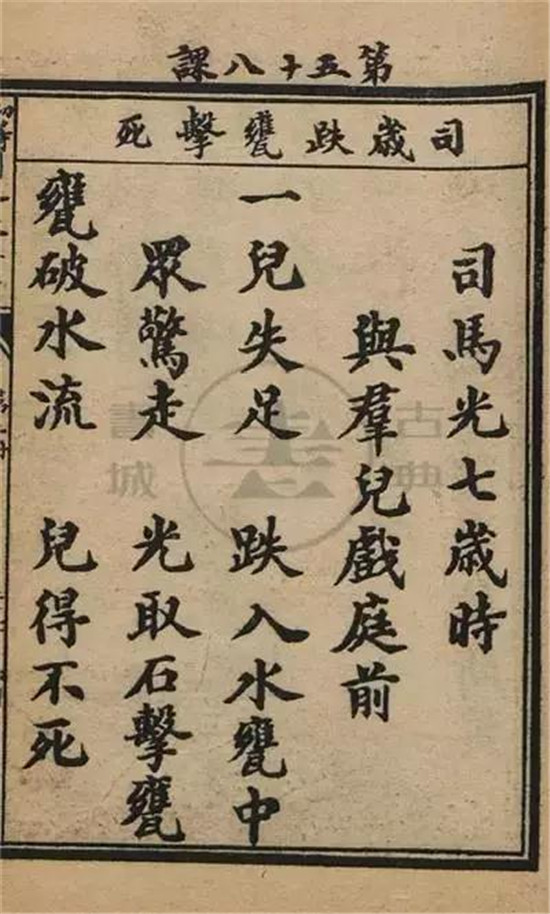 第五十八課
司歲跌甕擊死
司馬光七歲時
與羣兒戲庭前
一兒失足 跌入水甕中
眾驚走 光取石擊甕
甕破水流 兒得不死
古典書城